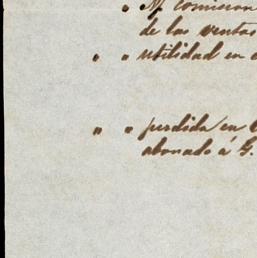 " M comision
de las ventas
" " utilidad en
" " perdida en
abonado á G.